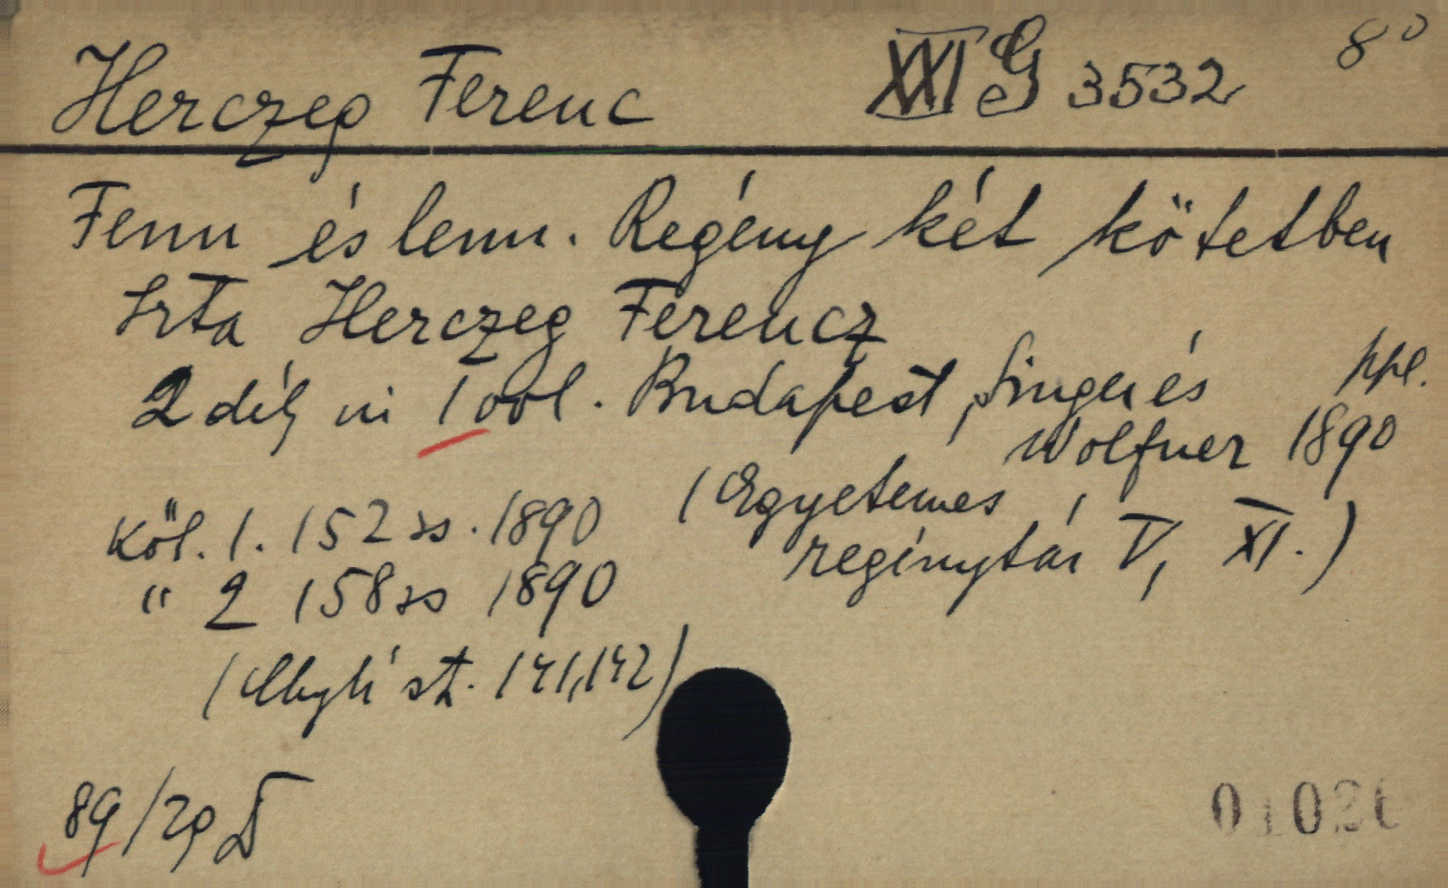 Herczeg Ferenc XXI G 3532 8°
Fenn és lenn. Regény két kötetben
Irta Herczeg Ferencz
2 db, in 1 vol. Budapest, Singer és ppl.
Wolfner 1890
(Egyetemes
regénytár V, XI.)
Köt. 1. 152 ss. 1890
" 2 158 ss 1890
st. 141,142)
89/29